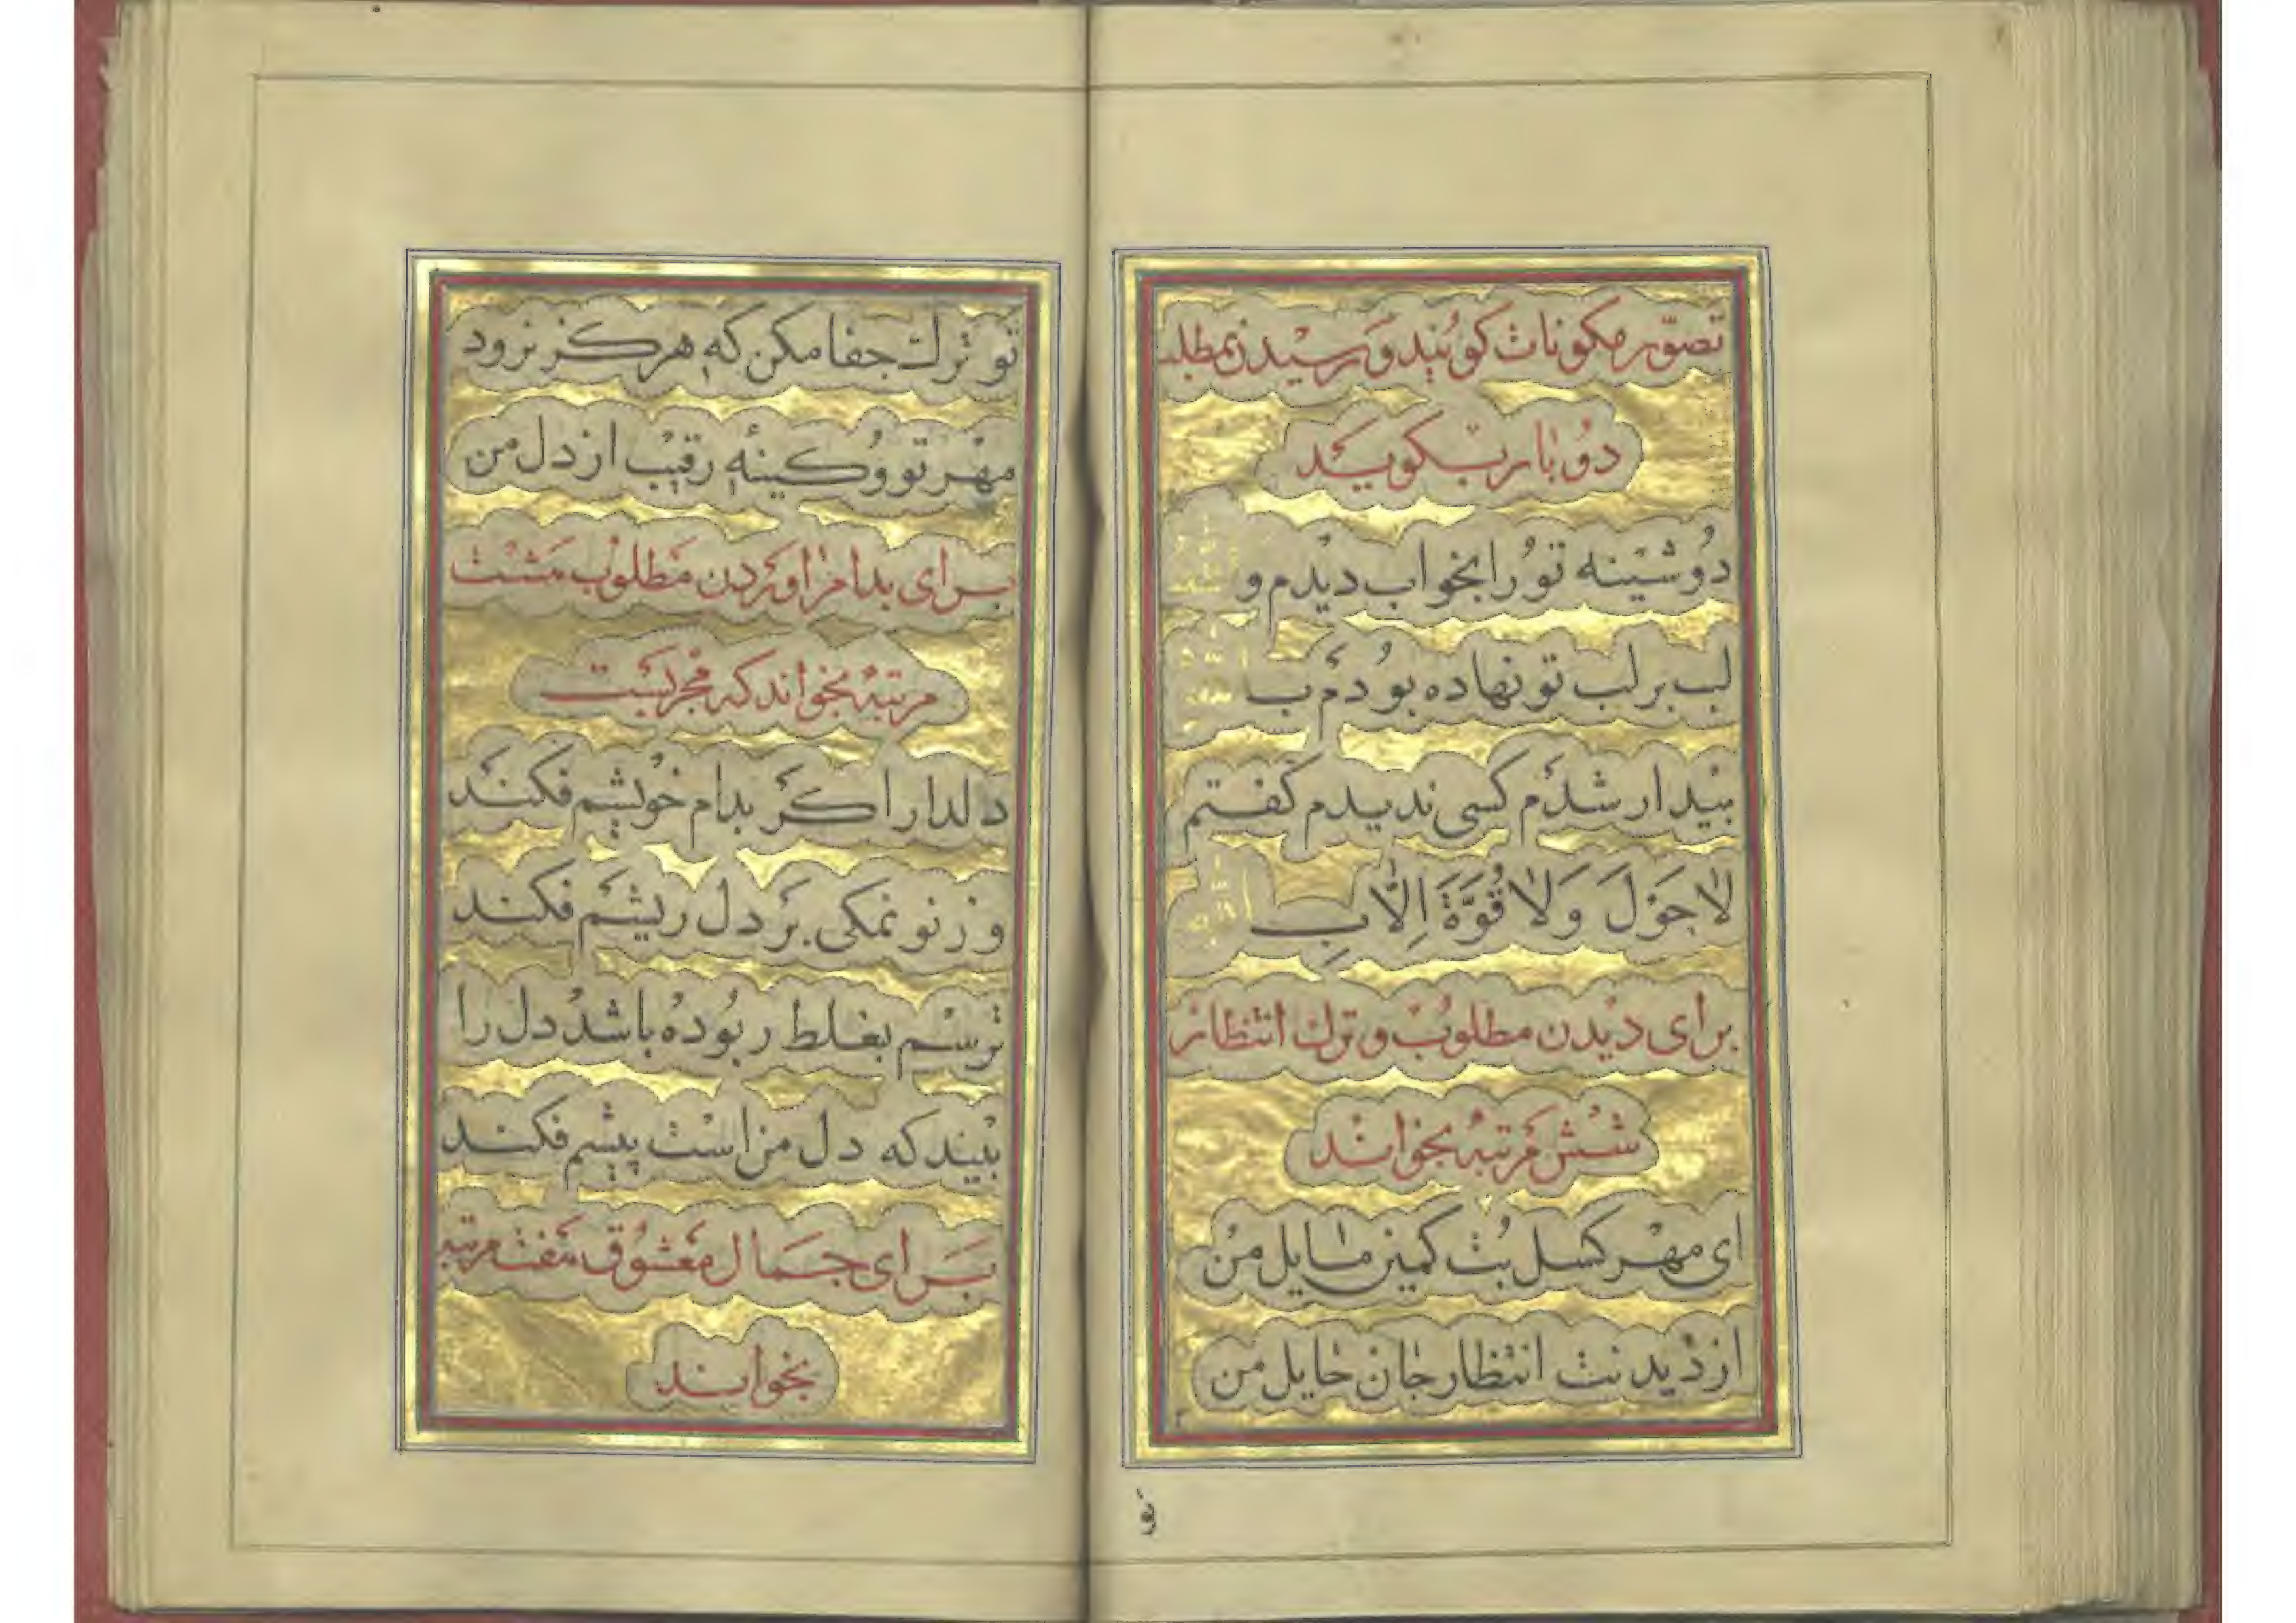 تصوّر مکونات کویند و رسیدن بمطلب
دو بار بکوید
دوشینه تو را بخواب دیدم و الله
لب بر لب تو نهاده بودم ب الله
بیدار شدم کسی ندیدم کفتم
لا حَوْلَ وَلا قُوَّةَ اِلّا بِالله
برای دیدن مطلوب و ترك انتظار
شش مرتبه بخواند
ای مهر کسل بت کمین مایل من
از دیدنت انتظار جان حایل من
تو
تو ترك جفا مکن که هرکز نرود
مهر تو و کینه رقیب از دل من
برای بدام اوردن مطلوب مشت
مرتبه بخواند که مجربست
دلدار اکر بدام خویشم فکند
وز نو نمکی بر دل ریشم فکند
ترسم بغلط ربوده باشد دل را
بیند که دل من است پیشم فکند
برای جمال معشوق هفت مرتبه
بخواند